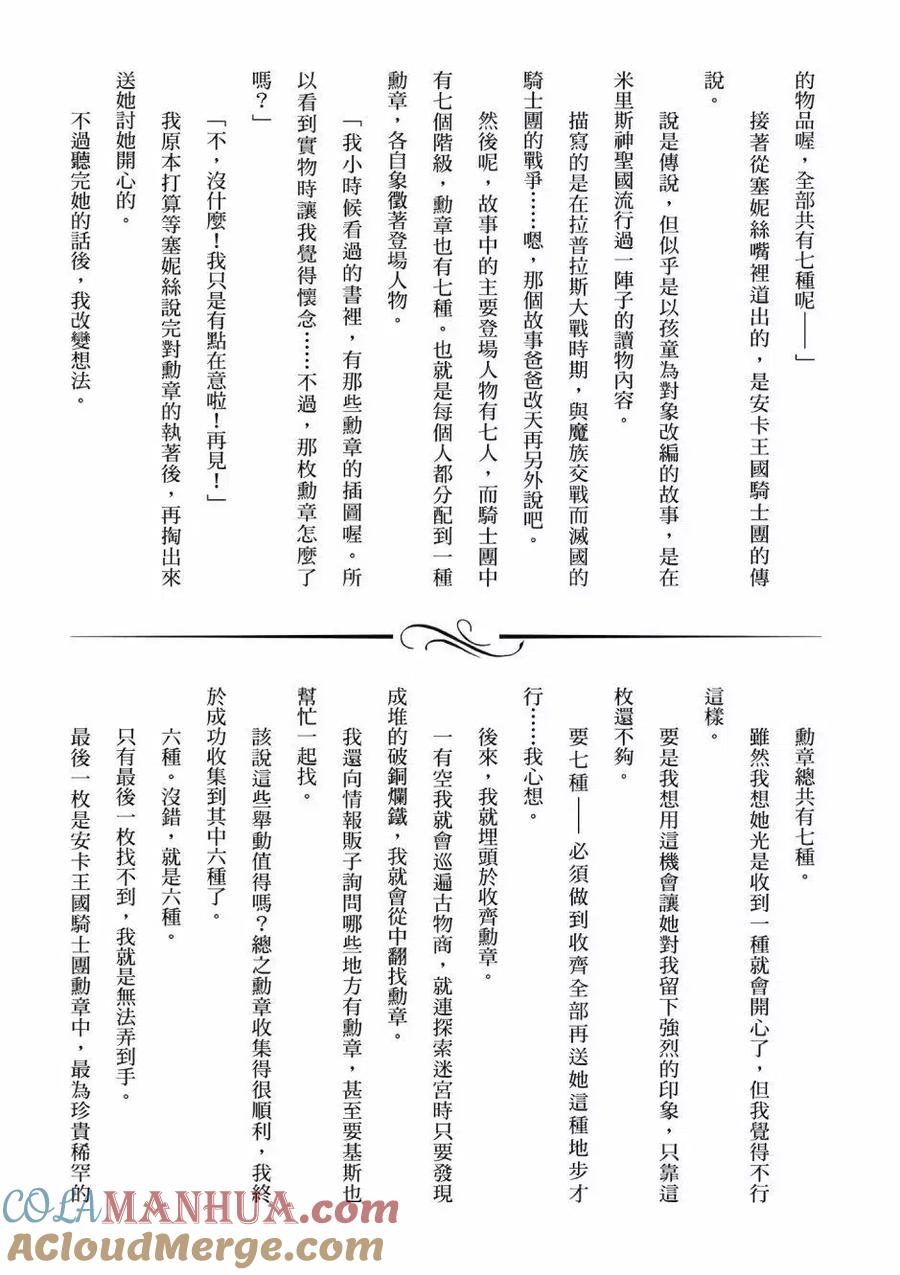 的物品喔，全部共有七種呢——」
接著從塞妮絲嘴裡道出的，是安卡王國騎士團的傳
說。
說是傳說，但似乎是以孩童為對象改編的故事，是在
米里斯神聖國流行過一陣子的讀物內容。
描寫的是在拉普拉斯大戰時期，與魔族交戰而滅國的
騎士團的戰爭……嗯，那個故事爸爸改天再另外說吧。
然後呢，故事中的主要登場人物有七人，而騎士團中
有七個階級，勳章也有七種。也就是每個人都分配到一種
勳章，各自象徵著登場人物。
「我小時候看過的書裡，有那些勳章的插圖喔。所
以看到實物時讓我覺得懷念……不過，那枚勳章怎麼了
嗎？」
「不，沒什麼！我只是有點在意啦！再見！」
我原本打算等塞妮絲說完對勳章的執著後，再掏出來
送她討她開心的。
不過聽完她的話後，我改變想法。
勳章總共有七種。
雖然我想她光是收到一種就會開心了，但我覺得不行
這樣。
要是我想用這機會讓她對我留下強烈的印象，只靠這
枚還不夠。
要七種——必須做到收齊全部再送她這種地步才
行……我心想。
後來，我就埋頭於收齊勳章。
一有空我就會巡遍古物商，就連探索迷宮時只要發現
成堆的破銅爛鐵，我就會從中翻找勳章。
我還向情報販子詢問哪些地方有勳章，甚至要基斯也
幫忙一起找。
該說這些舉動值得嗎？總之勳章收集得很順利，我終
於成功收集到其中六種了。
六種。沒錯，就是六種。
只有最後一枚找不到，我就是無法弄到手。
最後一枚是安卡王國騎士團勳章中，最為珍貴稀罕的
COLAMANHUA.com
ACloudMerge.com